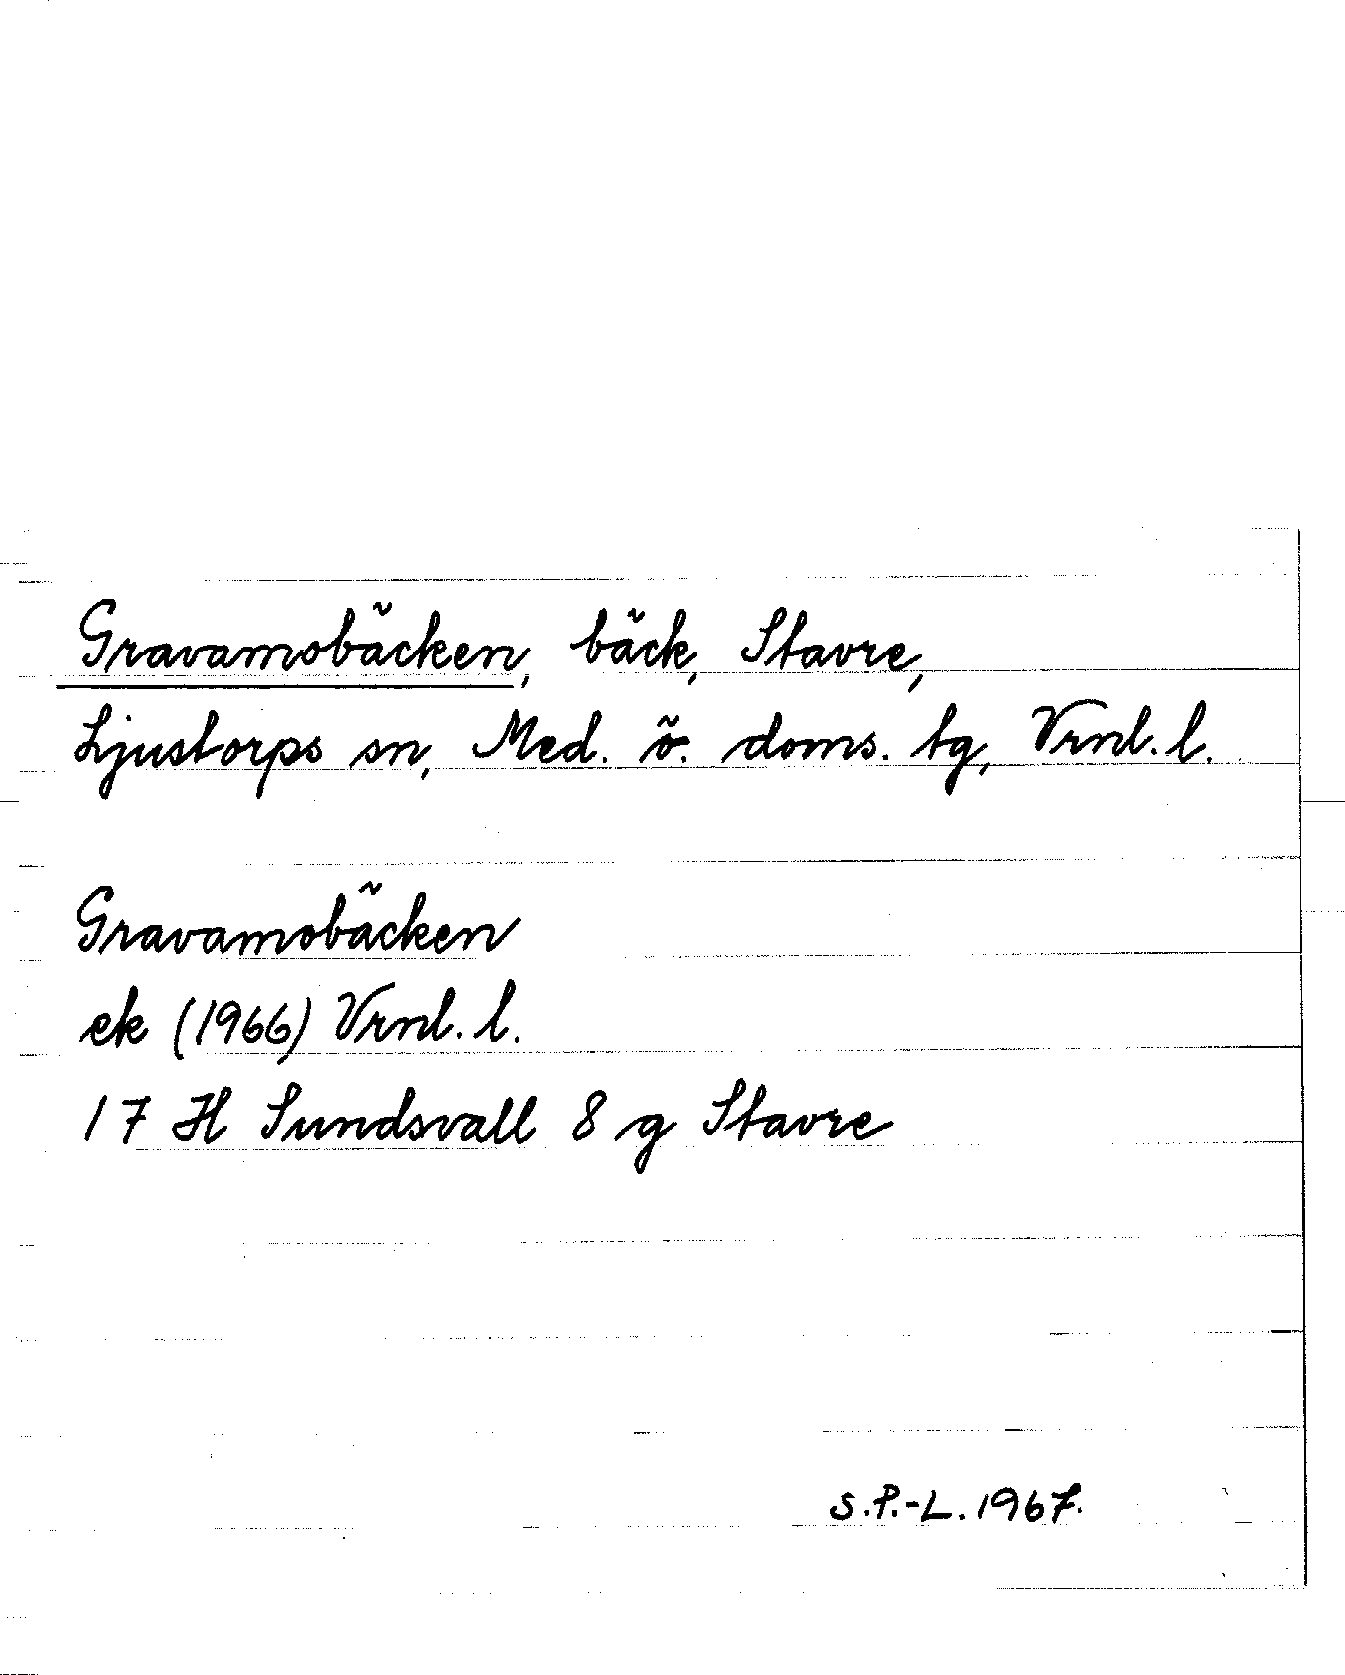 Gravamobäcken, bäck, Stavre,
Ljustorps sn, Med. ö. doms. tg, Vrnl. l.
Gravamobäcken
ek (1966) Vrnl. l.
17 H Sundsvall 8 g Stavre
S.P.-L. 1967.